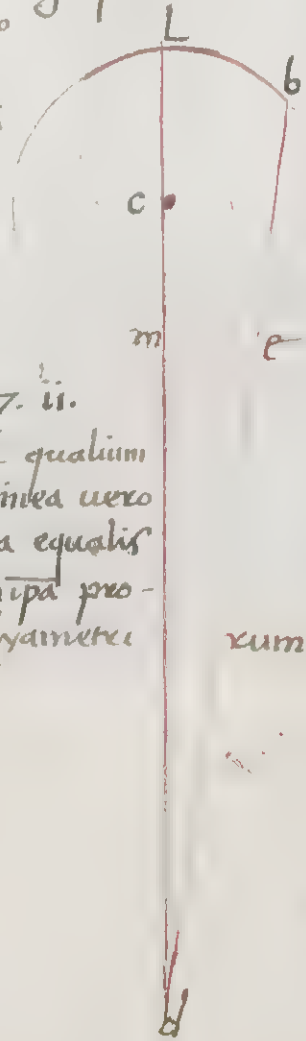 L
b
c
m
e
7. ii.
qualium
linea uero
a equalis
ipa pro-
dyametri
rum
d